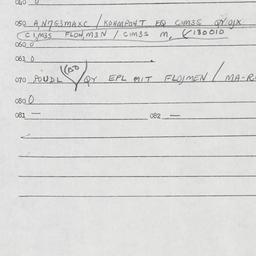 040 0
050 A,N7G3MAXC / KOHMPONT EQ CIM3S QY0JX
CIJM3S FLOH,M3N / CIM3S M, 180010
060 0
061 0
070 POUDL QY EPL MIT FLOJMEN / MA-R
080 0
081 — 082 —